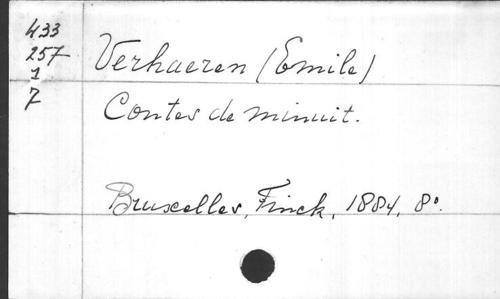 433
257
1
7
Verhaeren (Emile)
Contes de minuit.
Bruxelles, Finck, 1884, 8°.